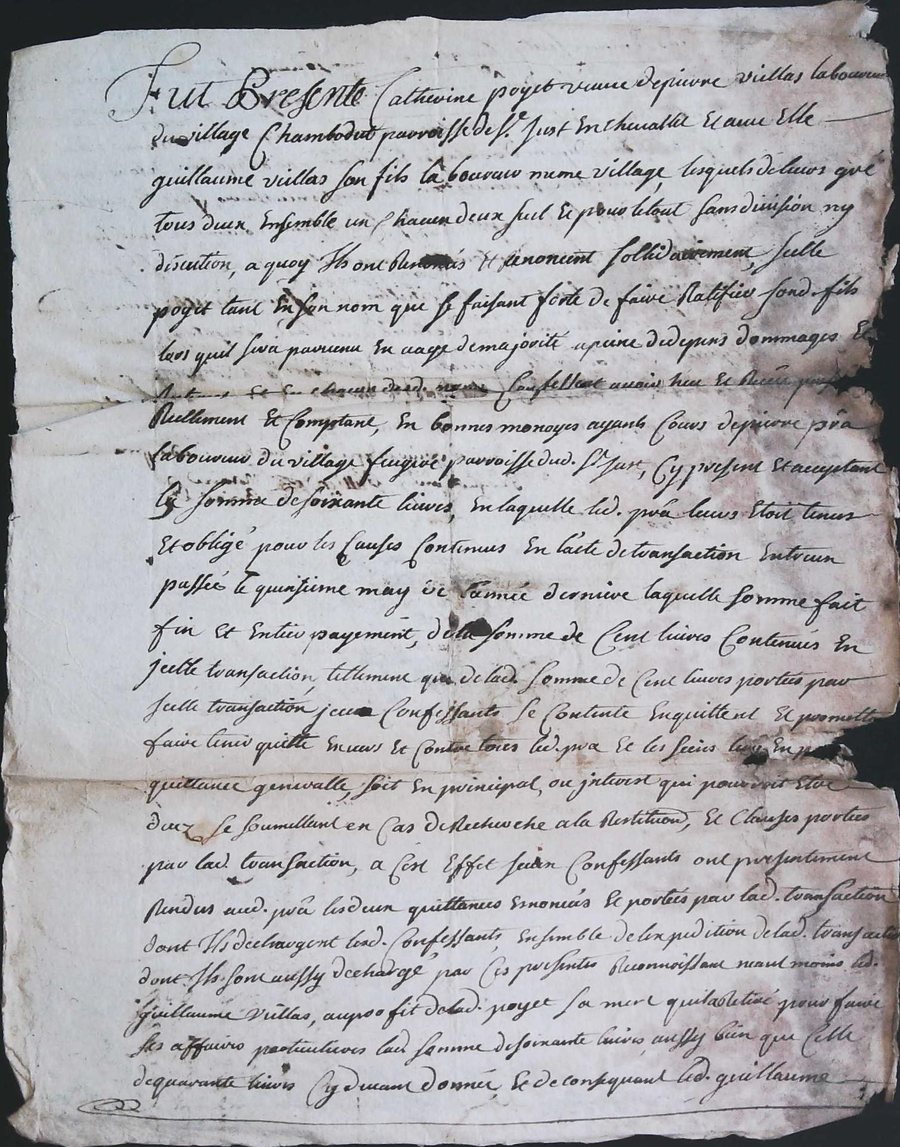 Fut Presente Catherine poyet veuve depierre viellas laboureur
du village Chambodut parroisse de St. Just En chevallet Et avec Elle
guillaume viellas son fils laboureur meme village, lesquels de leurs gré
tous deux Ensemble un chacun deux seul Et pour le tout sans division ny
discution, a quoy Ils ont Renoncés Et renoncent sollidairement, jcelle
poyet tant En son nom que se faisant forte de faire Ratifier sond. fils
lors quil sera parvenu En aage demajorité apeine de depens dommages Et
Et En chacun desd. noms Confessent avoir heu et Receu
Reellement Et Comptant, En bonnes monoyes ayants Cours depierre pra
laboureur du village feugere parroisse dud. St. Just, Cy present Et acceptant
La somme de soixante livres, En laquelle led. pra leurs Etoit tenus
Et obligé pour les Causes Contenues En lacte de transaction Entreux
passée le quinsieme may de lannée derniere laquelle somme fait
fin Et Entier payement, de la somme de Cent livres Contenues En
jcelle transaction, tellement que de lad. somme de Cent livres portées par
jcelle transaction jceux Confessants se Contente Enquittent Et promettent
faire tenir quitte Envers Et Contre tous led. pra Et les siens leurs En
quittance generalle, soit En principal, ou jnterest qui pourroit Etre
deuz se soumettant en Cas de Recherche a la Restitution, Et Clauses portées
par lad. transaction, a Cest Effet jceux Confessants ont presentement
Rendus aud. pra lesdeux quittances Enoncés Et portées par lad. transaction
dont Ils dechargent lesd. Confessants Ensemble de lexpedition de lad. transaction
dont Ils sont aussy dechargé, par Ces presentes Reconnoissant neant moins led.
guillaume viellas, auproofit de lad. poyet sa mere quil a Retiré pour faire
ses affaires particulieres lad. somme de soixante livres, aussy bien que Celle
dequarante livres Cy devant donnée, Et de Consequant led. guillaume